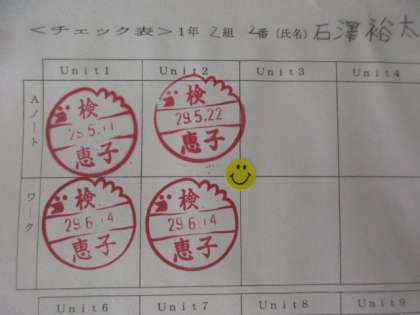 ＜チェック表＞1年 2組 2番 (氏名) 石澤 裕太
Unit1 Unit2 Unit3 Unit4
Aノート
検 検
29.5.22
恵子 恵子
ワーク
検 検
29.6.14 29.6.14
恵子 恵子
Unit6 Unit7 Unit8 Unit9